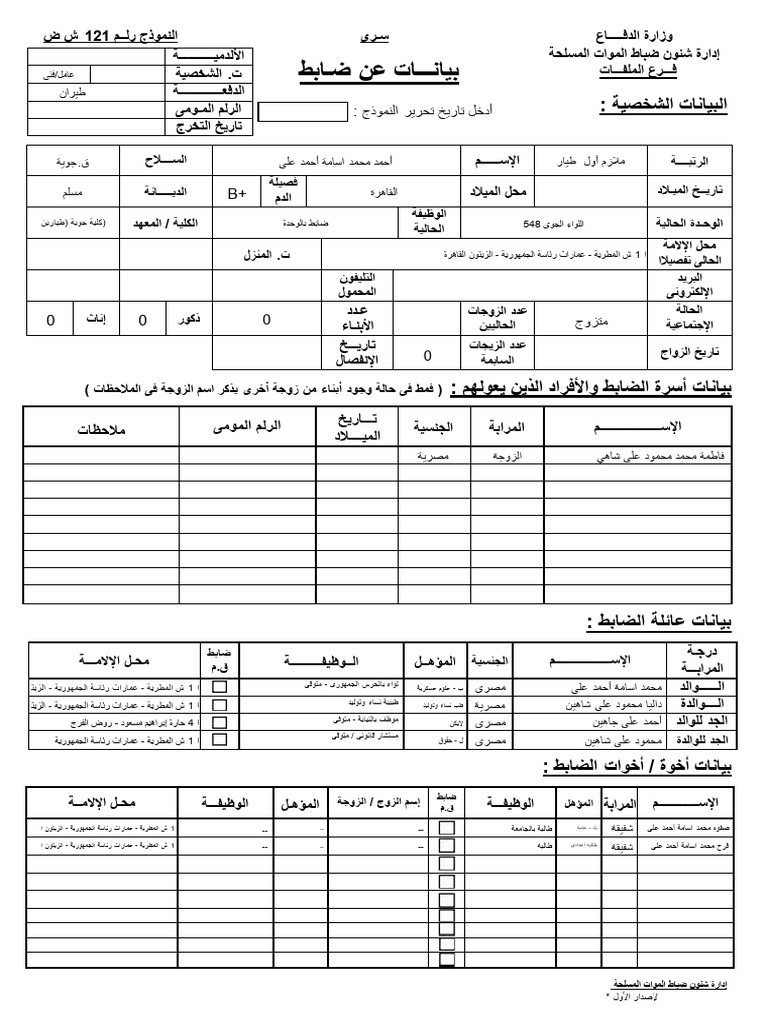 وزارة الدفـــاع
إدارة شئون ضباط الموات المسلحة
فـــرع الملفـــات
سـرى
النموذج رلـم 121 ش ض
بيانـــات عن ضـابط
الألدميـــــــة
ت. الشخصية
عامل/فنى
الدفعــــــة
طيران
الرلم المـومى
تاريخ التخرج
البيانات الشخصية :
أدخل تاريخ تحرير النموذج :
الرتبـــة
ملازم أول طيار
الإســـم
أحمد محمد اسامة أحمد على
الســـلاح
ق.جوية
تاريـخ الميـلاد
محل الميلاد
القاهرة
فصيلة الدم
B+
الديـــانة
مسلم
الوحـدة الحالية
اللواء الجوى 548
الوظيفة الحالية
ضابط بالوحدة
الكلية / المعهد
كلية جوية (طيارين)
محل الإلامة الحالى تفصيلاا
1 ش المطرية - عمارات رئاسة الجمهورية - الزيتون القاهرة
ت. المنزل
البريد الإلكترونى
التليفون المحمول
الحالة الإجتماعية
متزوج
عدد الزوجات الحاليين
عـدد الأبنـاء
0
ذكور
0
إناث
0
تاريخ الزواج
عدد الزيجات السابمة
0
تاريـــخ الإنفصال
بيانات أسرة الضابط والأفراد الذين يعولهم : ( فمط فى حالة وجود أبناء من زوجة أخرى يذكر اسم الزوجة فى الملاحظات )
الإســــــــــم
المرابة
الجنسية
تـــاريخ الميـــلاد
الرلم المومى
ملاحظات
فاطمة محمد محمود على شاهي
الزوجة
مصرية
بيانات عائلة الضابط :
درجـة المرابـــة
الإســــــــم
الجنسية
المؤهـل
الـوظيفـــــــة
ضابط ق.م
محـل الإلامـــة
الـــــوالد
محمد اسامة أحمد على
مصرى
ب - علوم عسكرية
لواء بالحرس الجمهورى - متوفى
1 ش المطرية - عمارات رئاسة الجمهورية - الزيتـ
الـــوالدة
داليا محمود على شاهين
مصرية
طب نساء وتوليد
طبيبة نساء وتوليد
1 ش المطرية - عمارات رئاسة الجمهورية - الزيتـ
الجد للوالد
أحمد على جاهين
مصرى
موظف بالنيابة - متوفى
4 حارة إبراهيم مسعود - روض الفرج
الجد للوالدة
محمود على شاهين
مصرى
ل - حقوق
مستشار قانونى / متوفى
1 ش المطرية - عمارات رئاسة الجمهورية
بيانات أخوة / أخوات الضابط :
الإســـــــم
المرابة
المؤهل
الوظيفـــة
ضابط ق.م
إسم الزوج / الزوجة
المؤهـل
الوظيفـــة
محـل الإلامـــة
صفوه محمد اسامة أحمد على
شقيقة
طالبة بالجامعة
--
--
--
1 ش المطرية - عمارات رئاسة الجمهورية - الزيتون ا
فرح محمد اسامة أحمد على
شقيقة
طالبه إعدادى
طالبه
--
--
--
1 ش المطرية - عمارات رئاسة الجمهورية - الزيتون ا
إدارة شئون ضباط الموات المسلحة
لإصدار الأول *